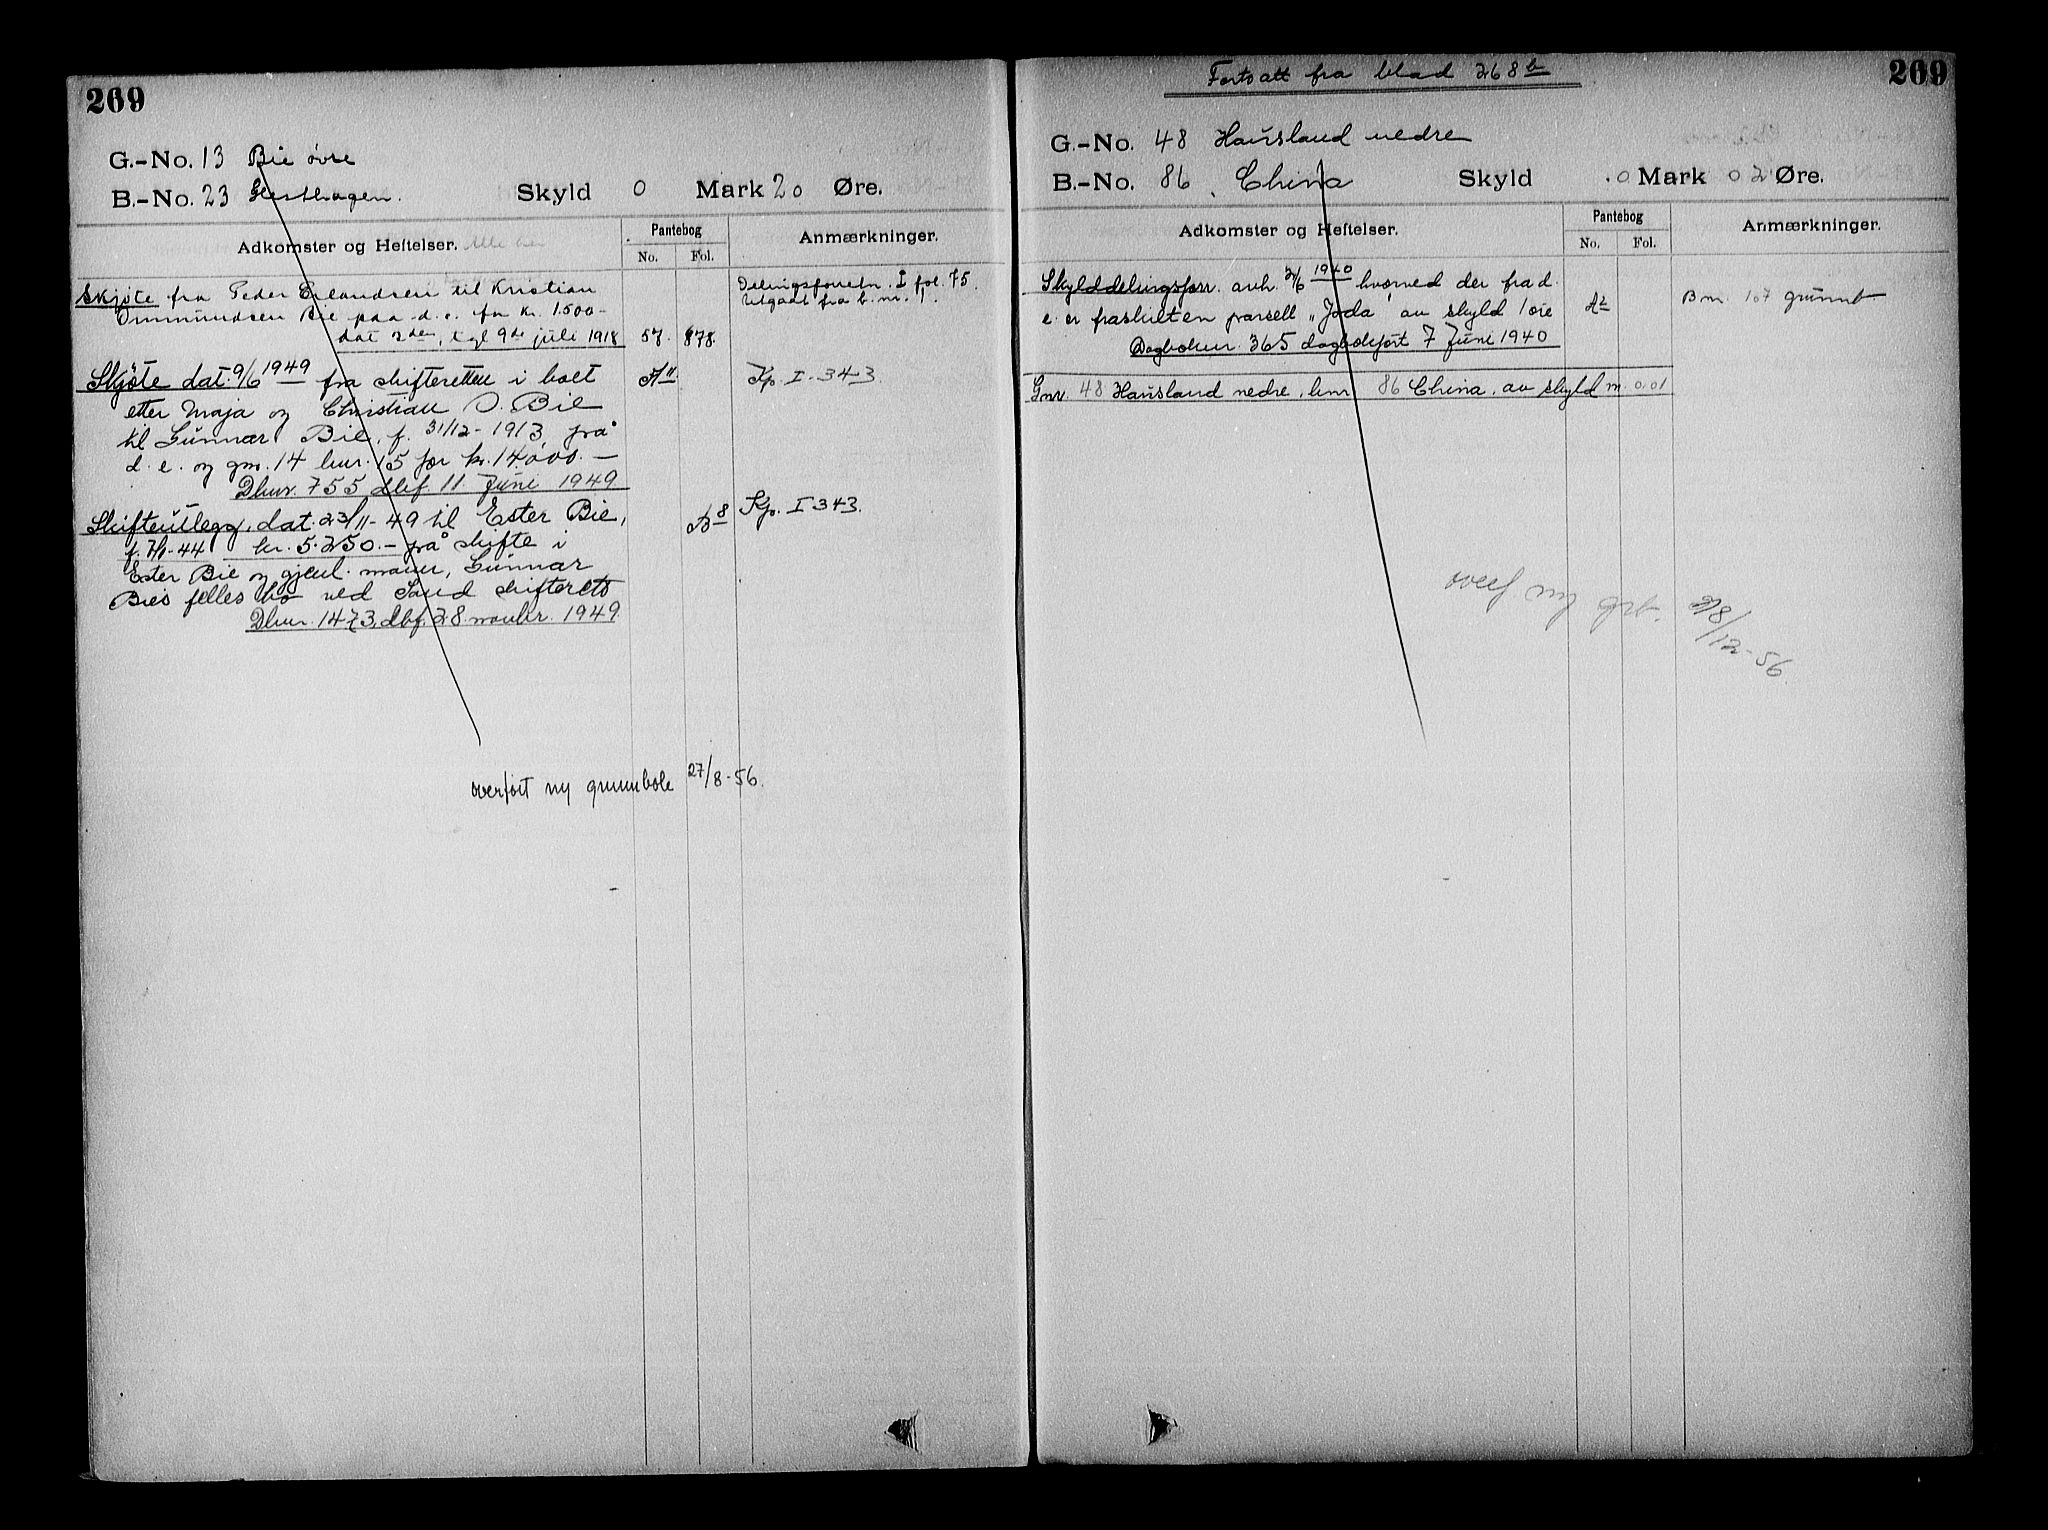 269
G.-No. 13 Bie øvre
B.-No. 23 Hesthagen. Skyld 0 Mark 20 Øre.
Adkomster og Heftelser.
Pantebog
No. Fol.
Anmærkninger.
Skjøte fra Peder Erlandsen til Kristian
Ommundsen Bie paa d. e. for kr. 1500-
dat 2den, tgl 9de juli 1918
57. 878.
Delingsforretn. I fol. 75.
Utgaat fra b. nr. 1.
Skjøte dat. 9/6 1949 fra skifteretten i boet
etter Maja og Christian O. Bie
til Gunnar Bie, f. 31/12-1913, på
d. e. og gnr. 14 bnr. 15 for kr. 14.000.-
Dbnr. 755 dbf. 11. Juni 1949
A 11
Kp. I - 343.
Skifteutlegg, dat. 23/11-49 til Ester Bie,
kr. 5.250.- på skifte i
Ester Bie og gjenl. mann, Gunnar
Bies felles bo ved Sand skifterett
Dbnr. 1473, dbf. 28. novbr. 1949.
B 8
Kp. I 343.
overført ny grunnbok 27/8-56.
Fortsatt fra blad 268 b
269
G.-No. 48 Hausland nedre
B.-No. 86 China Skyld 0 Mark 02 Øre.
Adkomster og Heftelser.
Pantebog
No. Fol.
Anmærkninger.
Skylddelingsforr. avh. 3/6 1940 hvorved der fra d.
e. er fraskilt en parsell „Joda" av skyld 1 øre
Dagboknr. 365 dagbokført 7 Juni 1940
A 2
Bnr. 107 grunnb
Gnr. 48 Hausland nedre, bnr 86 China, av skyld m. 0.01
overf. ny grb. 28/12-56